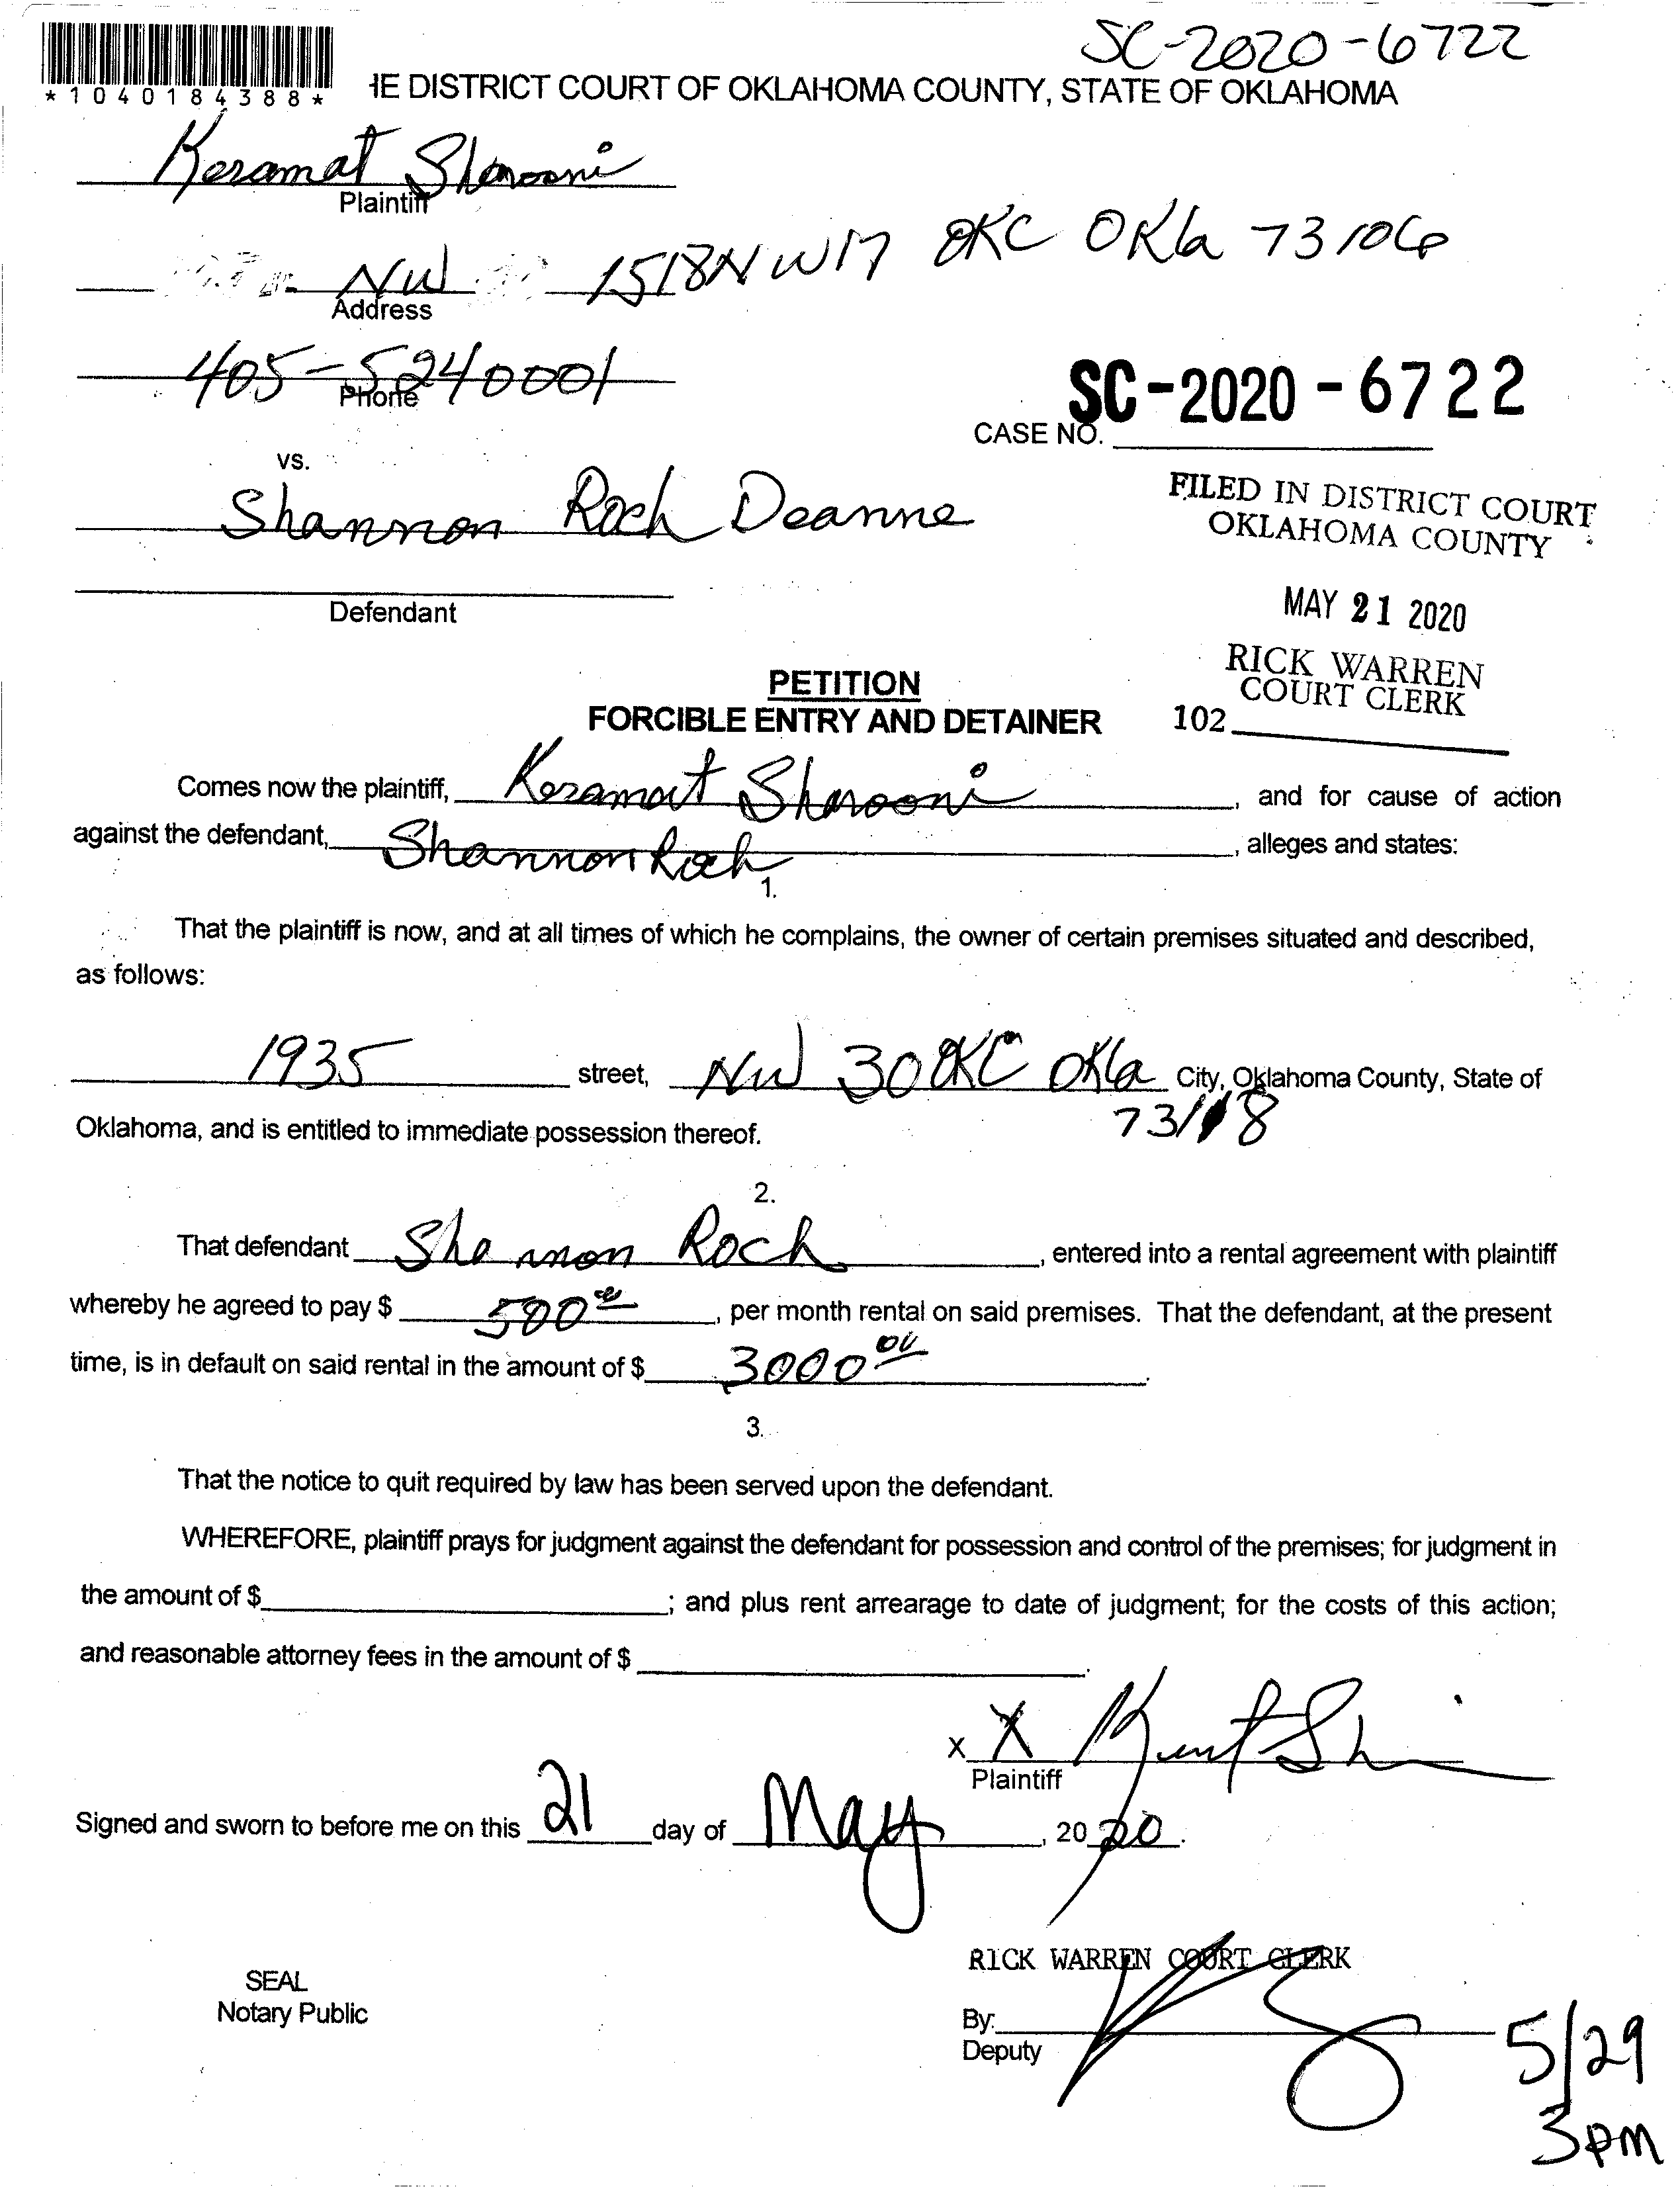 SC-2020-6722
*1040184388*
HE DISTRICT COURT OF OKLAHOMA COUNTY, STATE OF OKLAHOMA
Keramat Sharooni
Plaintiff
NW 1518 NW17 OKC OKla 73106
Address
405-5240001
Phone
SC-2020-6722
CASE NO.
vs.
Shannon Roch Deanne
Defendant
FILED IN DISTRICT COURT
OKLAHOMA COUNTY
MAY 21 2020
RICK WARREN
COURT CLERK
102
PETITION
FORCIBLE ENTRY AND DETAINER
Comes now the plaintiff, Keramat Sharooni, and for cause of action
against the defendant, Shannon Roch, alleges and states:
1.
That the plaintiff is now, and at all times of which he complains, the owner of certain premises situated and described,
as follows:
1935 street, NW 30 OKC OKla City, Oklahoma County, State of
73118
Oklahoma, and is entitled to immediate possession thereof.
2.
That defendant Shannon Roch, entered into a rental agreement with plaintiff
whereby he agreed to pay $ 500 00, per month rental on said premises. That the defendant, at the present
time, is in default on said rental in the amount of $ 3000 00.
3.
That the notice to quit required by law has been served upon the defendant.
WHEREFORE, plaintiff prays for judgment against the defendant for possession and control of the premises; for judgment in
the amount of $; and plus rent arrearage to date of judgment; for the costs of this action;
and reasonable attorney fees in the amount of $.
x X
Plaintiff
Signed and sworn to before me on this 21 day of May, 2020.
RICK WARREN COURT CLERK
SEAL
Notary Public
By:
Deputy
5/29
3pm